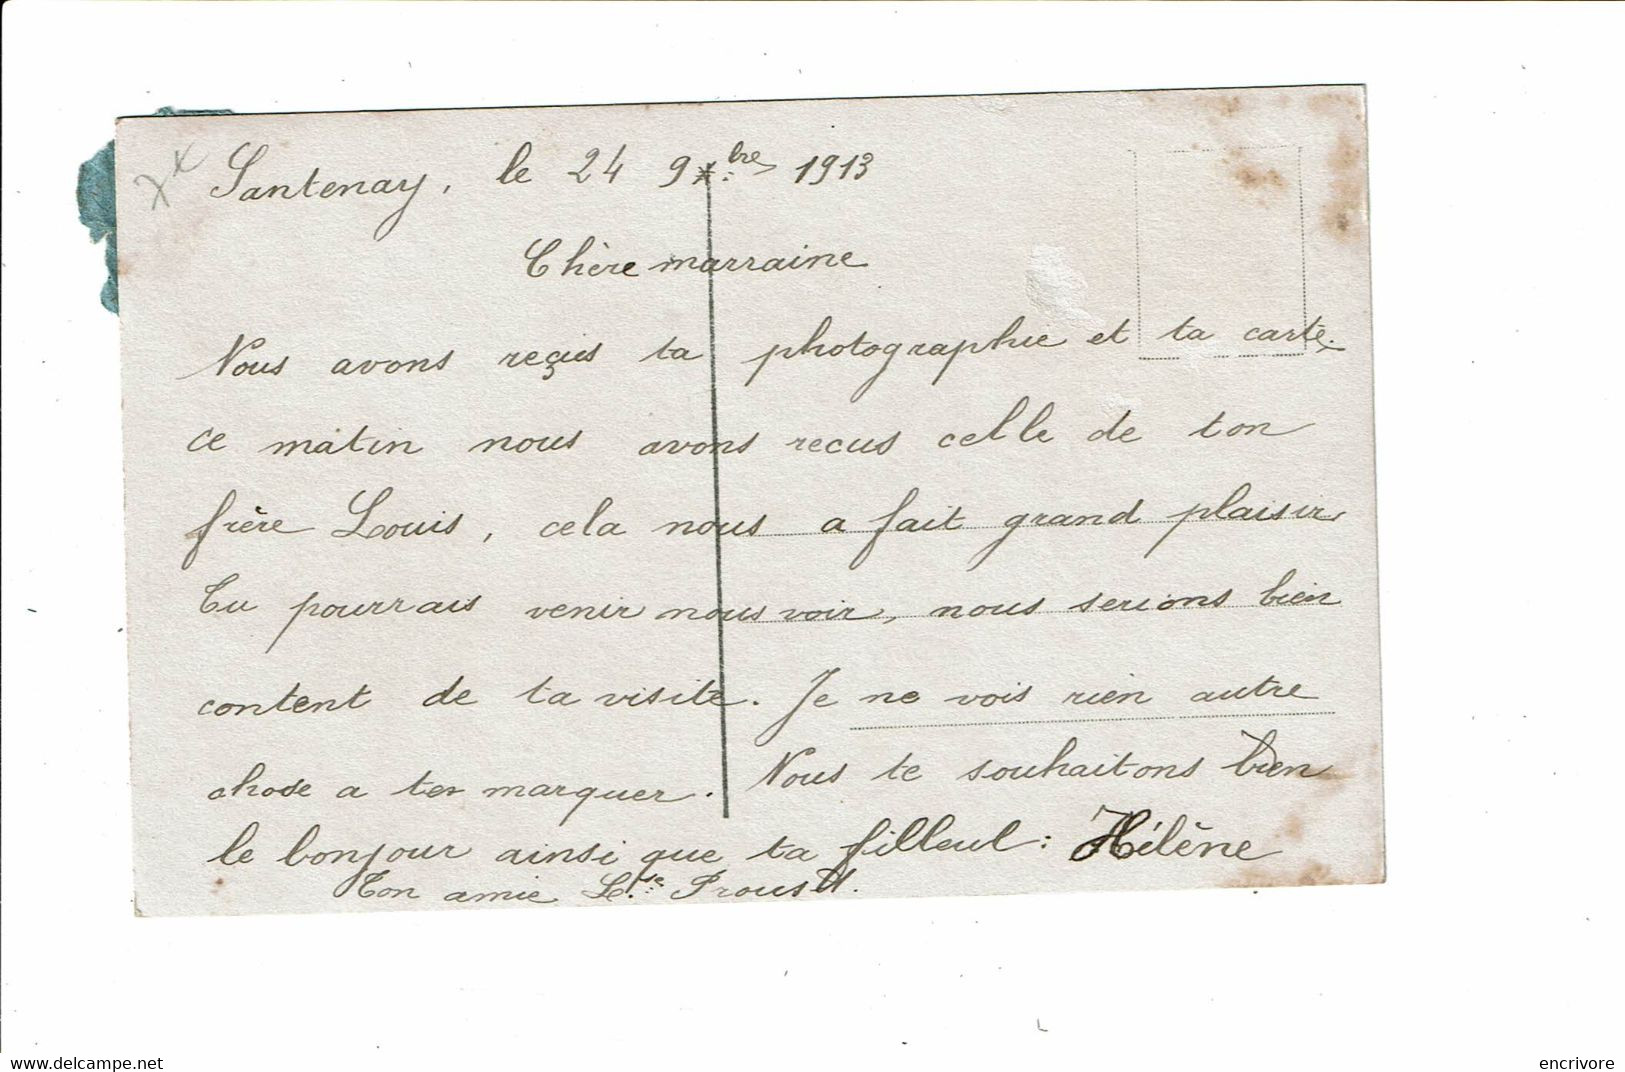 Santenay, le 24 9bre 1913
Chère marraine
Nous avons reçus ta photographie et ta carte.
ce matin nous avons recus celle de ton
frère Louis, cela nous a fait grand plaisir
Tu pourrais venir nous voir, nous serions bien
content de ta visite. Je ne vois rien autre
chose a te marquer. Nous te souhaitons bien
le bonjour ainsi que ta filleul : Hélène
Ton amie Proust.
www.delcampe.net
encrivore